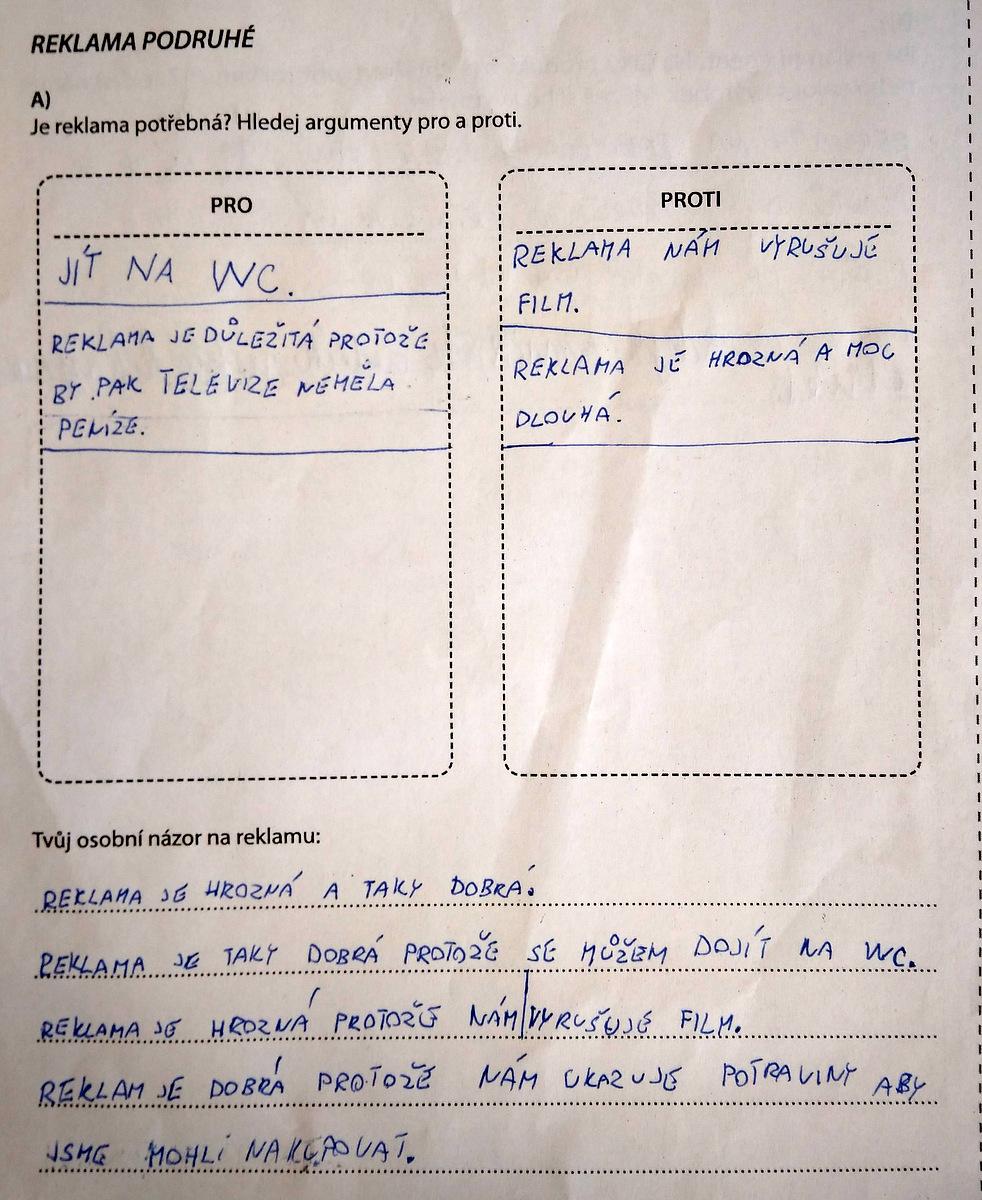 REKLAMA PODRUHÉ
A)
Je reklama potřebná? Hledej argumenty pro a proti.
PRO
JÍT NA WC.
REKLAMA JE DŮLEŽITÁ PROTOŽE
BY PAK TELEVIZE NEMĚLA
PENÍZE.
PROTI
REKLAMA NÁM VYRUŠUJE
FILM.
REKLAMA JE HROZNÁ A MOC
DLOUHÁ.
Tvůj osobní názor na reklamu:
REKLAMA JE HROZNÁ A TAKY DOBRÁ.
REKLAMA JE TAKY DOBRÁ PROTOŽE SE MŮŽEM DOJÍT NA WC.
REKLAMA JE HROZNÁ PROTOŽE NÁM VYRUŠUJE FILM.
REKLAM JE DOBRÁ PROTOŽE NÁM UKAZUJE POTRAVINY ABY
JSME MOHLI NAKUPOVAT.